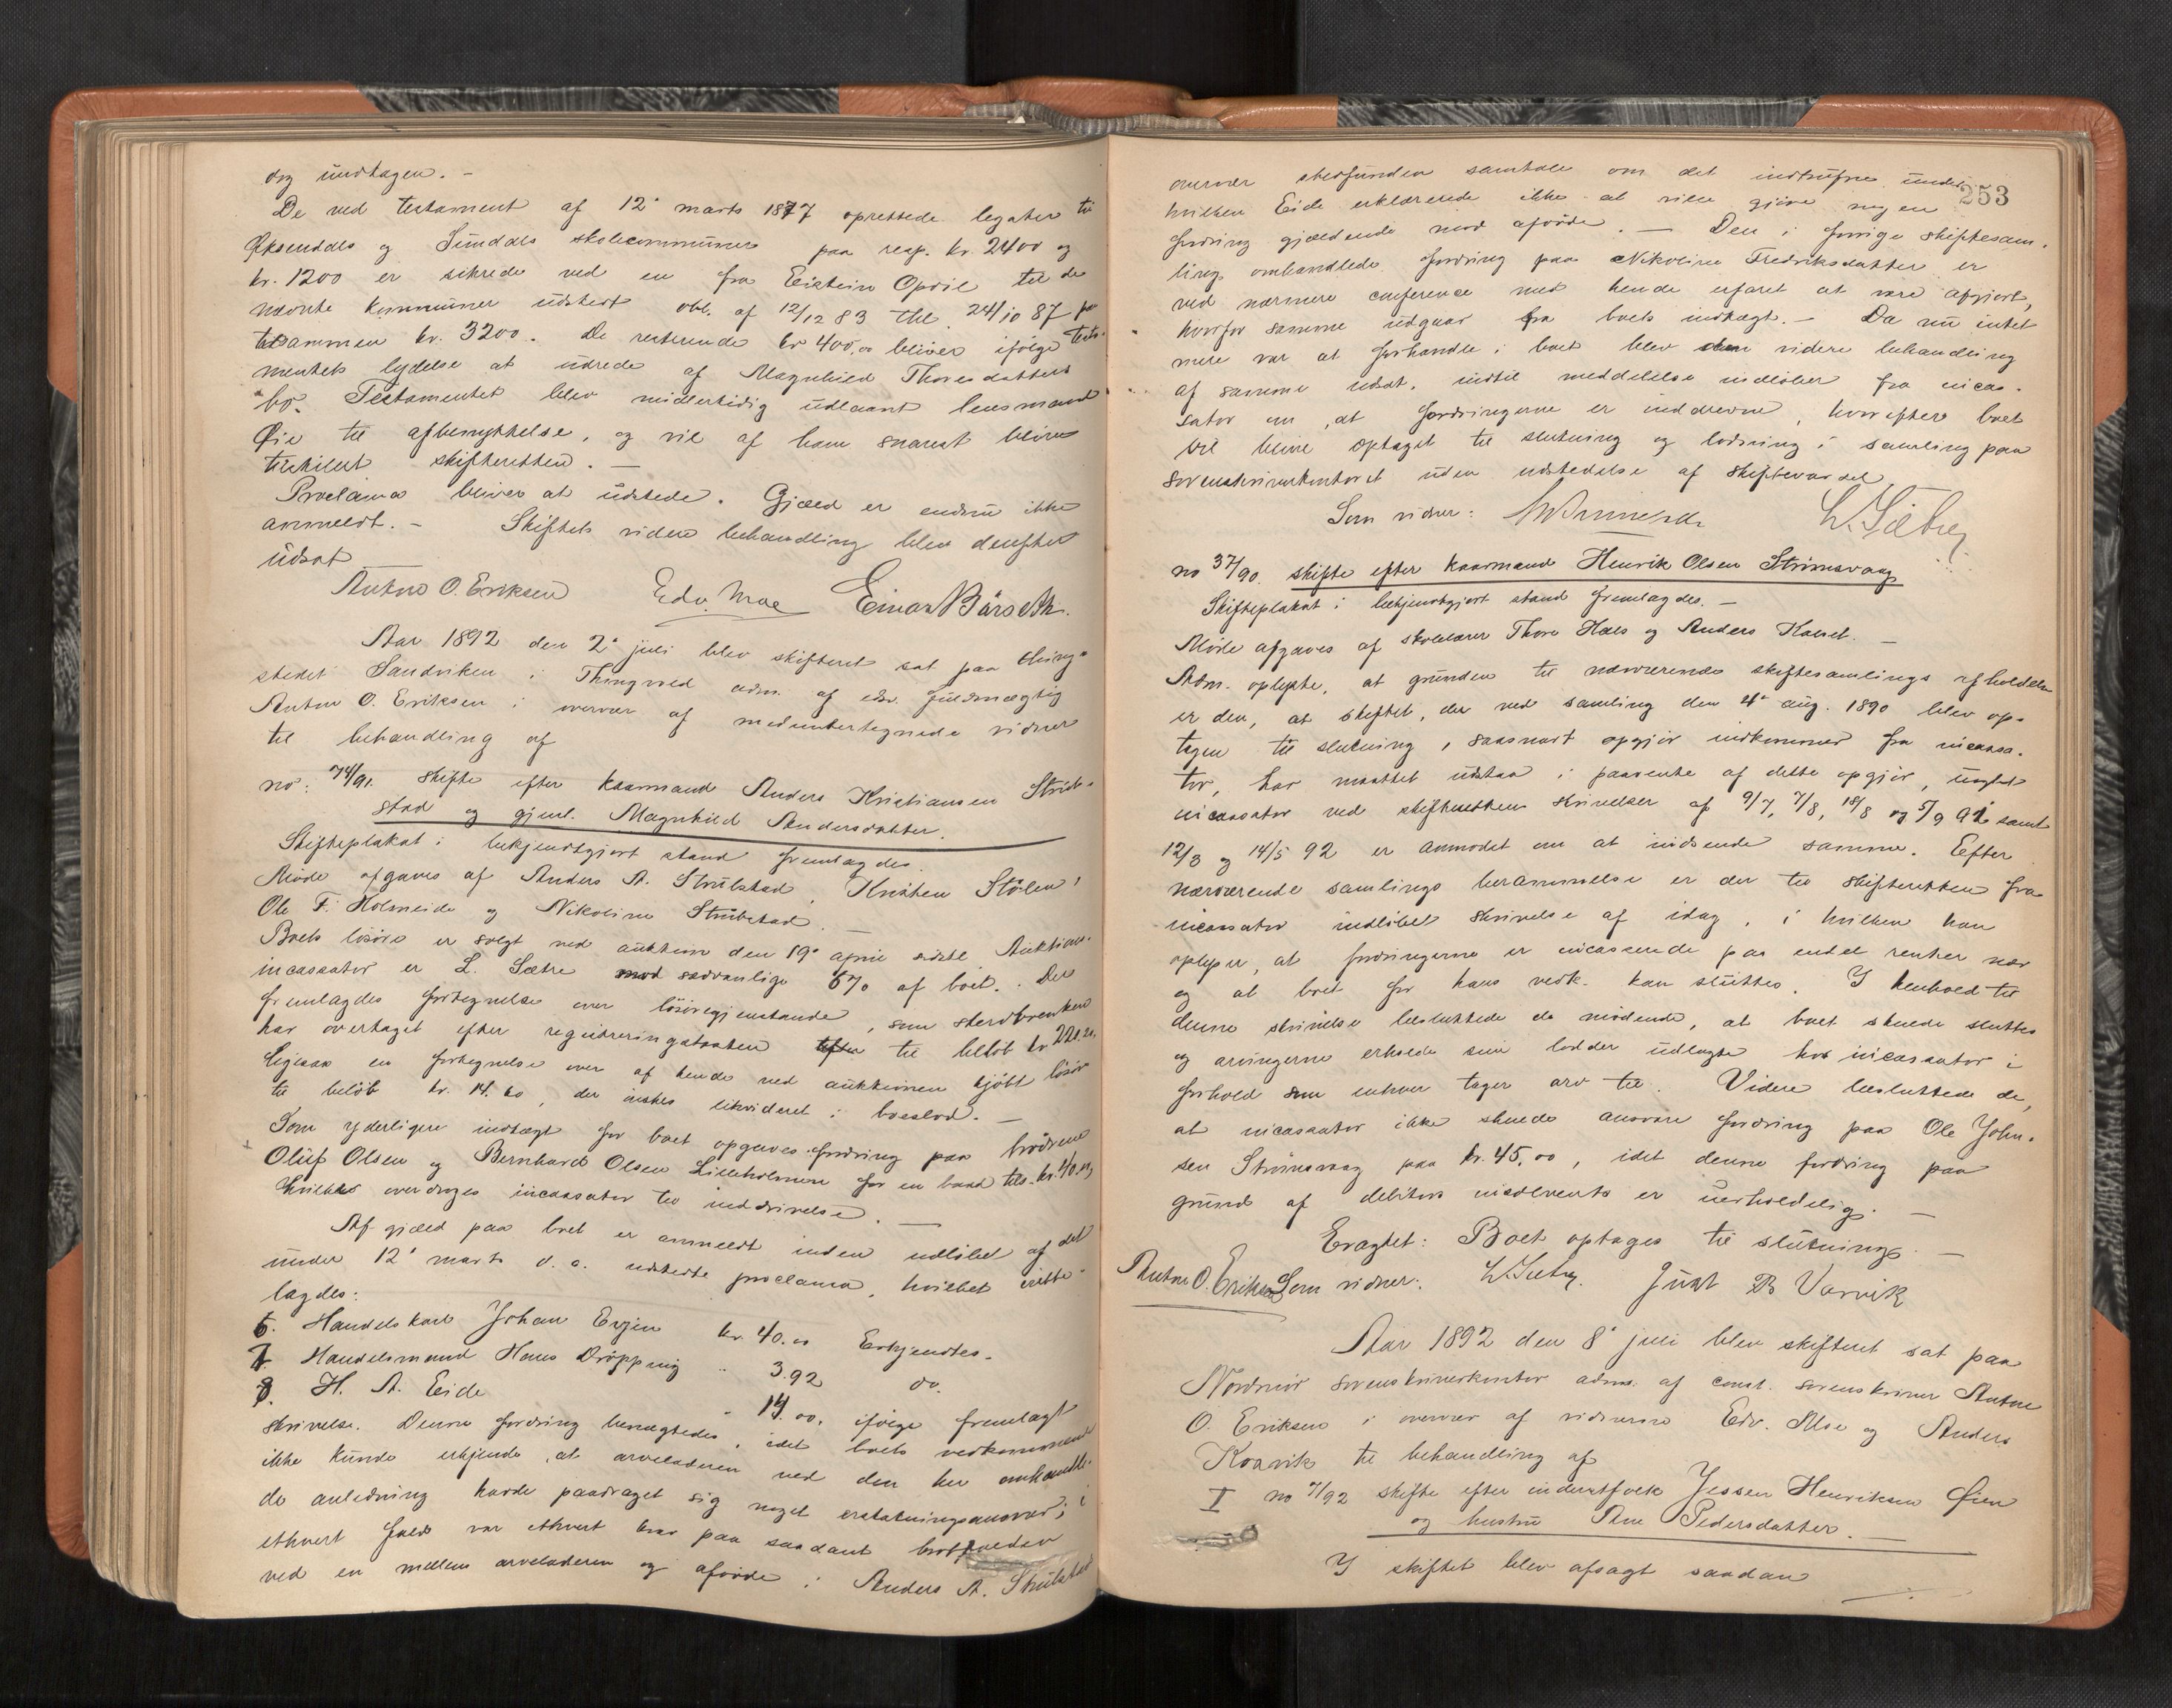 dog undtagen. -
De ved testament af 12' marts 1877 oprettede legater til
Øksendals og Sunddals skolecommuner paa resp. kr. 2400 og
kr. 1200 er sikrede ved en fra Eistein Opdøl til de
nævnte kommuner udstedt obl. af 12/12 83 thl. 24/10 87 for
tilsammen kr. 3200. De resterende kr 400,00 bliver ifølge testa-
mentets lydelse at udrede af Magnhild Thoresdatters
bo. Testamentet blev midlertidig udlaant lensmand
Øie til afbenyttelse, og vil af ham snarest blive
tilstillet skifteretten. -
Proclama bliver at udstede. Gjæld er endnu ikke
anmeldt. - Skiftets videre behandling blev derefter
udsat
Anton O. Eriksen Edv. Moe Einar Bårseth.
Aar 1892 den 2' juli blev skifteret sat paa thing-
stedet Sandviken i Thingvold adm. af edsv. fuldmægtig
Anton O. Eriksen i overvær af medundertegnede vidner
til behandling af
no. 74/91. skifte efter kaarmand Anders Kristiansen Strul-
stad og gjenl. Magnhild Andersdatter.
Skifteplakat i bekjendtgjort stand fremlagdes.
Møde afgaves af Anders A. Strulstad, Knut Stølen,
Ole F. Holmeide og Nikoline Strulstad. -
Boets løsøre er solgt ved auktion den 19' april sidstl. Auktions-
incassator er L. Sætre mod sædvanlige 6% af boet. Der
fremlagdes fortegnelse over løsøregjenstande, som stervboenken
har overtaget efter registreringstaxten til beløb kr 221.20,
ligesaa en fortegnelse over af hende ved auktionen kjøbt løsøre
til beløb kr. 14.60, der ønskes likvideret i boeslod. -
Som yderligere indtægt for boet opgaves fordring paa brødrene
Oluf Olsen og Bernhard Olsen Lilleholmen for en baad tils. kr. 40.00,
hvilke overdroges incassator til inddrivelse. -
Af gjæld paa boet er anmeldt inden udløbet af det
under 12' marts d. a. udstedte proclama, hvilket irette-
lagdes:
6. Handelskarl Johan Evjen kr. 40.00 Erkjendtes.
7. Handelsmand Hans Drøpping " 3.92 do.
8. H. A. Eide " 14.00, ifølge fremlagt
skrivelse. Denne fordring benægtedes, idet boets vedkommende
ikke kunde erkjende, at arveladeren ved den her omhandle-
de anledning havde paadraget sig noget erstatningsansvar; i
ethvert fald var ethvert krav paa saadant bortfaldet
ved en mellem arveladeren og afdøde i Anders A. Strulstad
253
overvær stedfunden samtale om det indtrufne under
hvilken Eide erklærede ikke at ville gjøre nogen
fordring gjældende mod afdøde. - Den i forrige skiftesam-
ling omhandlede fordring paa Nikoline Fredriksdatter er
ved nærmere conference med hende erfaret at være afgjort,
hvorfor samme udgaar fra boets indtægt. - Da nu intet
mere var at forhandle i boet blev den videre behandling
af samme udsat, indtil meddelelse indløber fra incas-
sator om, at fordringerne er inddrevne, hvorefter boet
vil blive optaget til slutning og lodning i samling paa
sorenskriverkontoret uden udstedelse af skiftevarsel
Som vidner: L. Sætre
no 37/90. skifte efter kaarmand Henrik Olsen Strømsvaag
Skifteplakat i bekjendtgjort stand fremlagdes. -
Møde afgaves af skolelærer Thore Hals og Anders -
Adm. oplyste, at grunden til nærværende skiftesamlings afholdelse
er den, at skiftet, der ved samling den 4' aug. 1890 blev op-
tagen til slutning, saasnart opgjør indkommer fra incassa-
tor, har maattet udstaa i paavente af dette opgjør, uagtet
incassator ved skifterettens skrivelser af 9/7, 7/8, 18/8 og 5/9 91 samt
12/3 og 14/5 92 er anmodet om at indsende samme. Efter
nærværende samlings berammelse er der til skifteretten fra
incassator indløbet skrivelse af idag, i hvilken han
oplyser, at fordringerne er incasserede paa endel renter nær
og at boet for hans vedk. kan sluttes. I henhold til
denne skrivelse besluttede de mødende, at boet skulde sluttes
og arvingerne erholde sine lodder udlagte hos incassator i
forhold som enhver tager arv til. Videre besluttede de,
at incassator ikke skulde ansvare fordring paa Ole John-
sen Strømsvaag paa kr. 45,00, idet denne fordring paa
grund af debitors insolvents er uerholdelig. -
Eragtet: Boet optages til slutning. -
Anton O. Eriksen Som vidner: L. Sætre. Just B Vaarvik
Aar 1892 den 8' juli blev skifteret sat paa
Nordmør sorenskriverkontor adm. af const. sorenskriver Anton
O. Eriksen i overvær af vidnerne Edv. Moe og Anders
Kvarvik til behandling af
I no 7/92 skifte efter inderstfolk Jessen Henriksen Øien
og hustru Ane Pedersdatter. -
I skiftet blev afsagt saadan